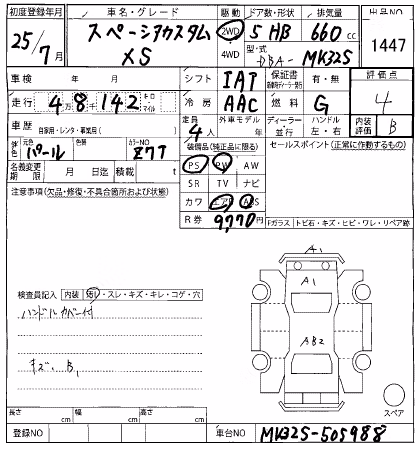 初度登録年月 車名・グレード 駆動 ドア数・形状 排気量 出品NO
25/7月 スペーシアカスタム XS 2WD 4WD 5 HB 660cc 1447
型・式 DBA- MK32S
車検 年 月 シフト IAT 保証書 有・無 評価点
走行 4万8千142 キロ・マイル 冷房 AAC 燃料 G 4
車歴 自家用・レンタ・事業用( ) 定員 4人 外車モデル 年 ディーラー・並行 ハンドル 左・右 内装評価 B
元色 パール 色替 カラーNO Z7T 装備品(純正品に限る) セールスポイント(正常に動作するもの)
名義変更期限 月 日迄 積載 t PS PW AW
注意事項(欠品・修復・不具合箇所および状態) SR TV ナビ
カワ エアB ABS
R券 9770円 Fガラス トビ石・キズ・ヒビ・ワレ・リペア跡
A1
A1
検査員記入 内装 汚れ・スレ・キズ・キレ・コゲ・穴
ハンドルカバー付
AB2
キズ、B1
スペア
長さ cm 幅 cm 高さ cm
登録NO 車台NO MK32S-505988